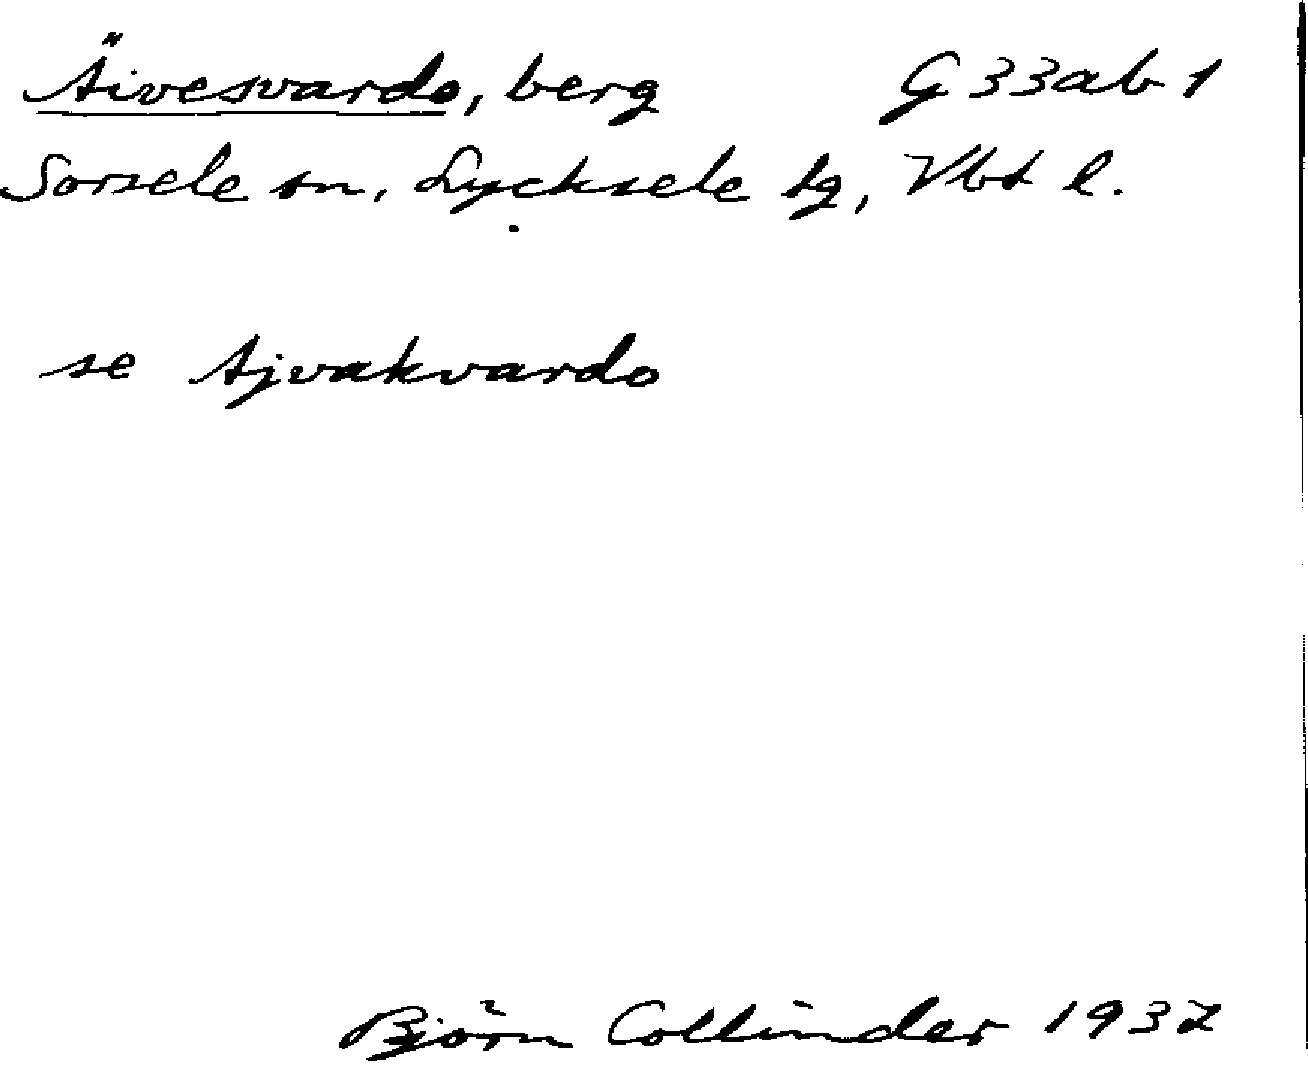 Äivesvardo, berg G 33ab 1
Sorsele sn, Lycksele tg, Vbt l.
se Ajvakvardo
Björn Collinder 1937